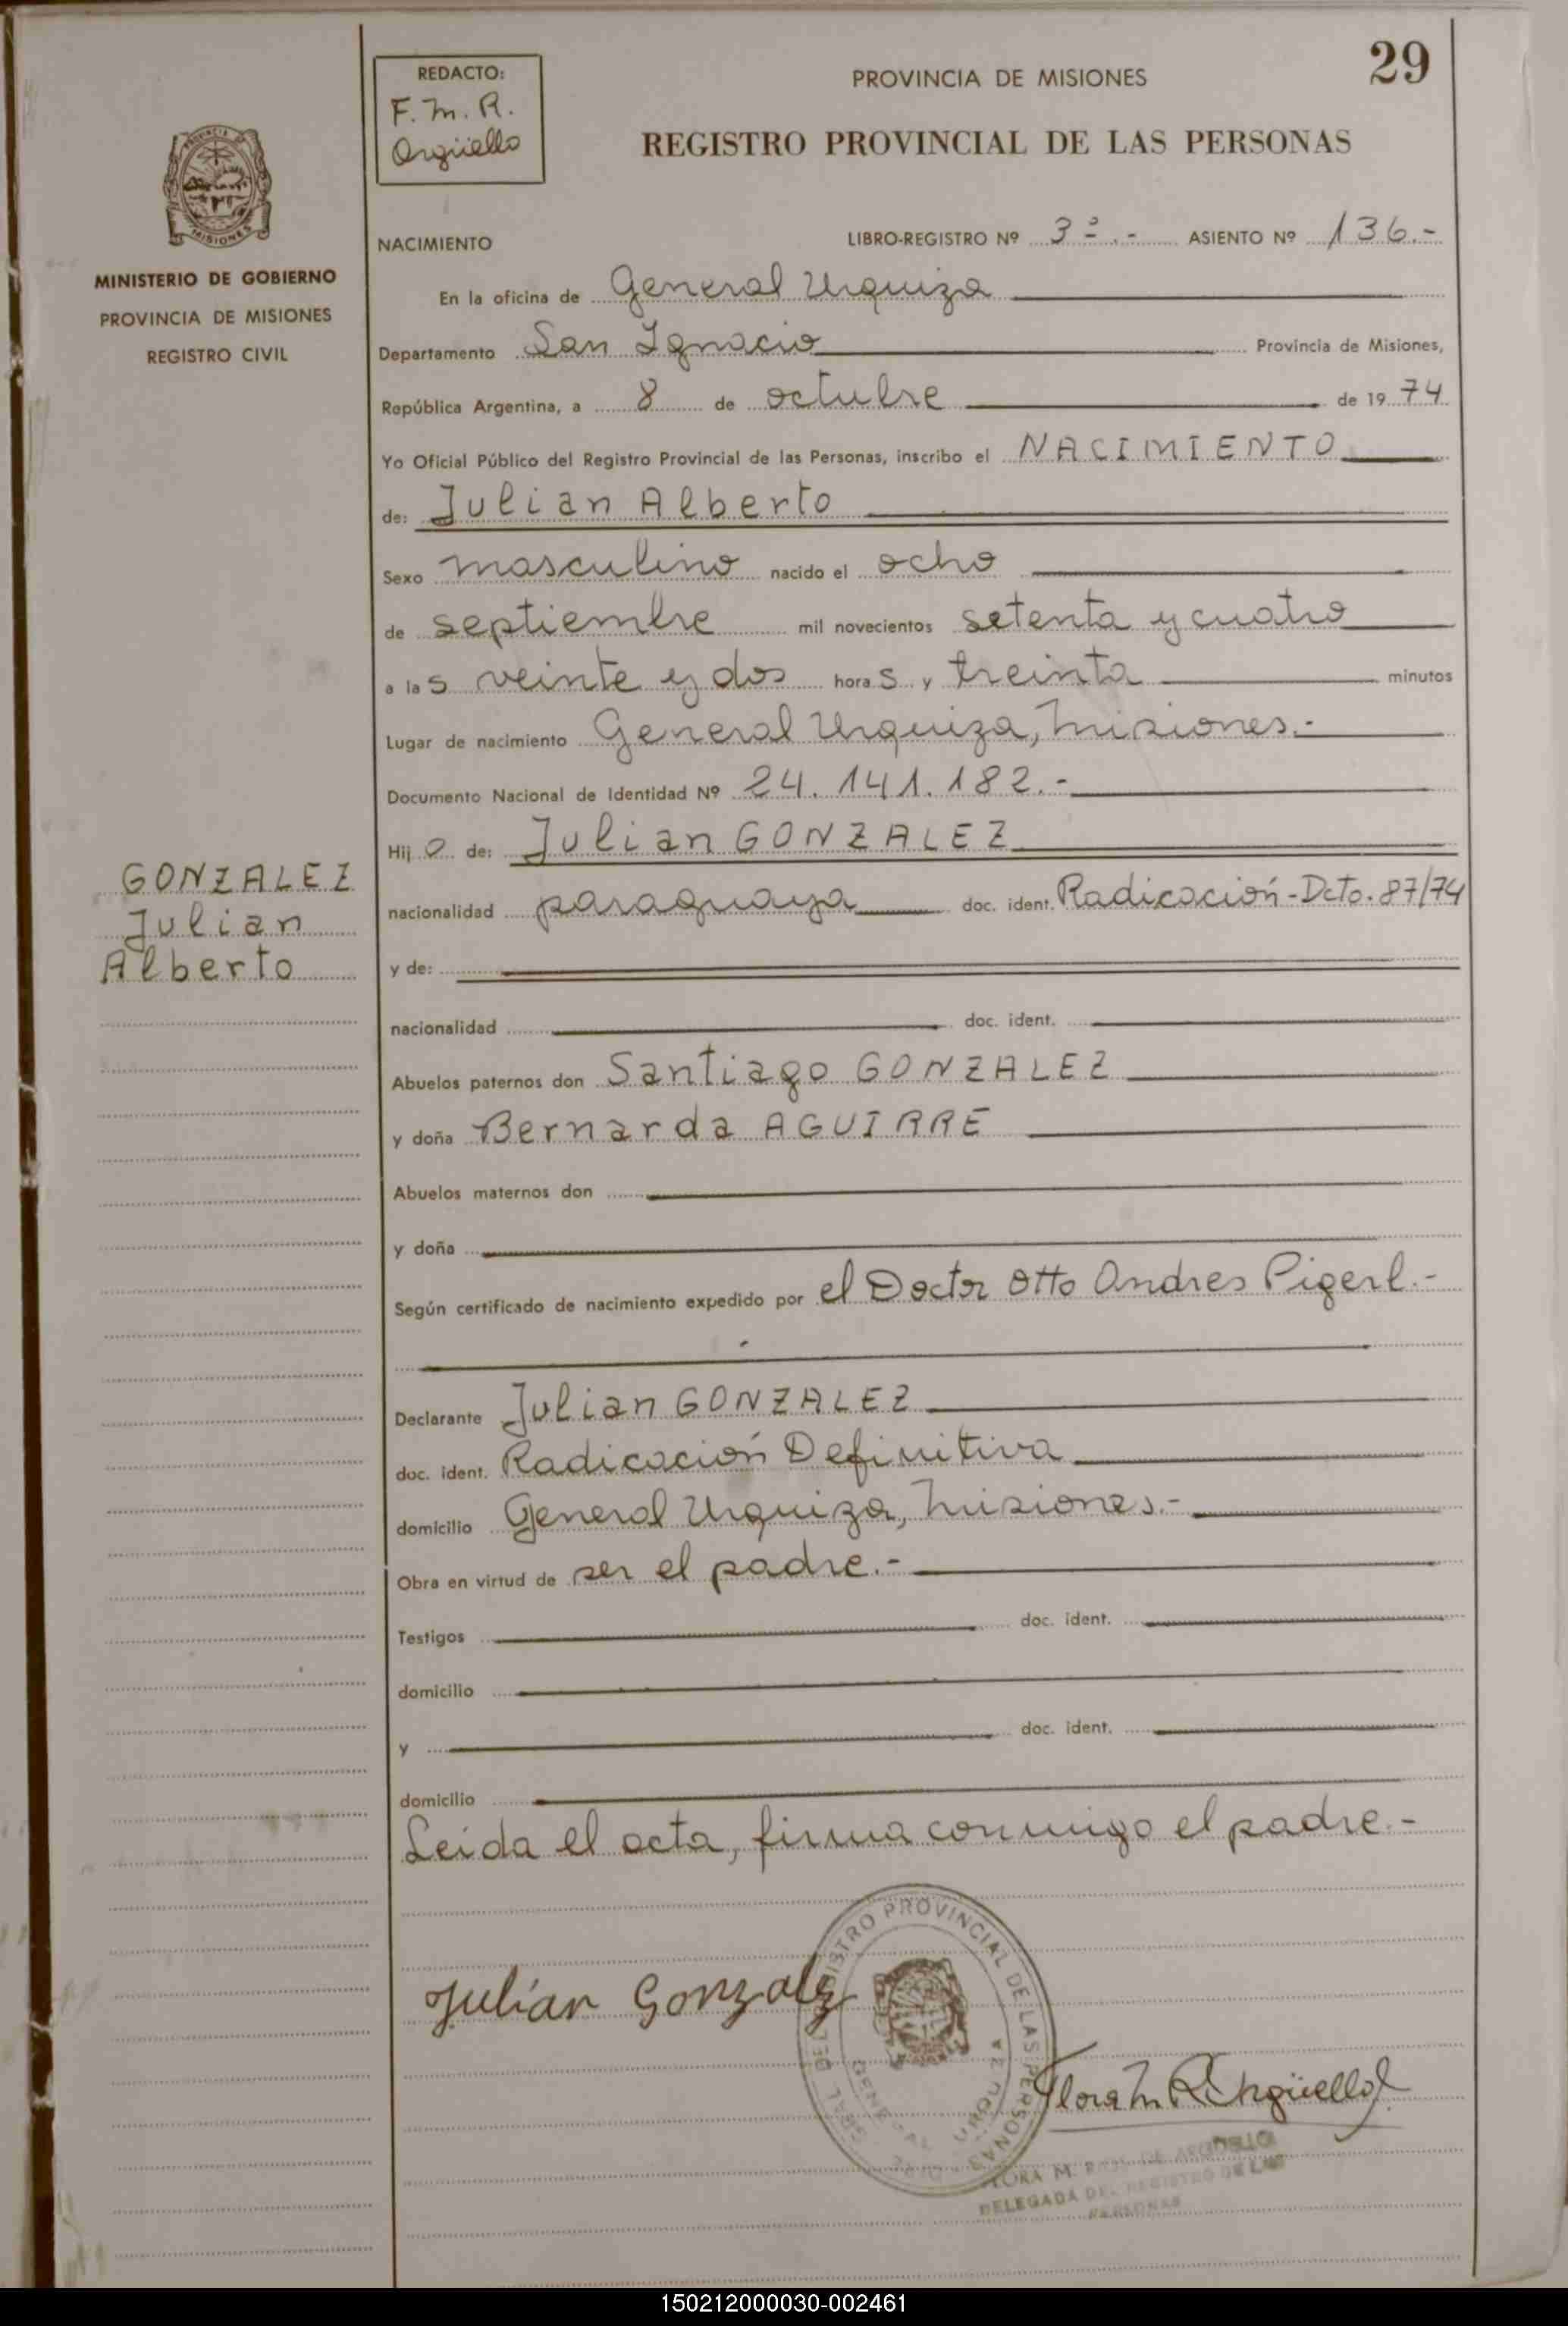 29
REDACTO:
F. M. R.
Orgüello
PROVINCIA DE MISIONES
REGISTRO PROVINCIAL DE LAS PERSONAS
MISIONES
MINISTERIO DE GOBIERNO
PROVINCIA DE MISIONES
REGISTRO CIVIL
NACIMIENTO LIBRO-REGISTRO Nº 3º.- ASIENTO Nº 136.-
En la oficina de General Urquiza
Departamento San Ignacio Provincia de Misiones,
República Argentina, a 8 de octubre de 1974
Yo Oficial Público del Registro Provincial de las Personas, inscribo el NACIMIENTO
de: Julian Alberto
Sexo masculino nacido el ocho
de septiembre mil novecientos setenta y cuatro
a las veinte y dos horas y treinta minutos
Lugar de nacimiento General Urquiza, Misiones.-
Documento Nacional de Identidad Nº 24.141.182.-
Hijo de: Julian GONZALEZ
GONZALEZ
Julian
Alberto
nacionalidad paraguaya doc. ident. Radicación-Dcto. 87/74
y de:
nacionalidad doc. ident.
Abuelos paternos don Santiago GONZALEZ
y doña Bernarda AGUIRRE
Abuelos maternos don
y doña
Según certificado de nacimiento expedido por el Doctor Otto Andres Pigerl.-
Declarante Julian GONZALEZ
doc. ident. Radicación Definitiva
domicilio General Urquiza, Misiones.-
Obra en virtud de ser el padre.-
Testigos doc. ident.
domicilio
y doc. ident.
domicilio
Leida el acta, firma conmigo el padre.-
REGISTRO PROVINCIAL DE LAS PERSONAS
Julián Gonzalez
GENERAL URQUIZA
Flora M R Argüello
FLORA M. DE ARGUELLO
DELEGADA DEL REGISTRO DE LAS
PERSONAS
150212000030-002461